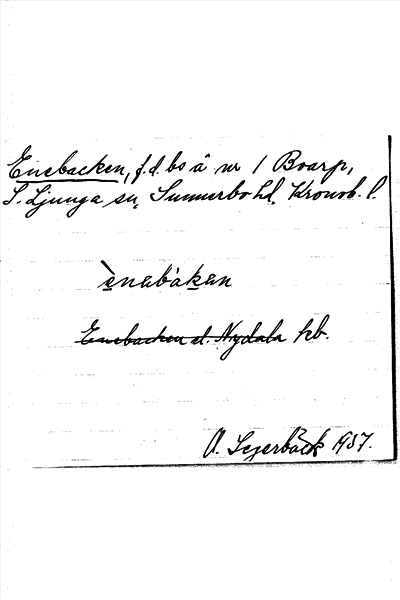 Enebacken, f.d. bs å nr 1 Boarp,
S. Ljunga sn, Sunnerbo hd, Kronob. l.
ènabàkan
Enebacken el. Nydala kb.
A. Segerbäck 1937.